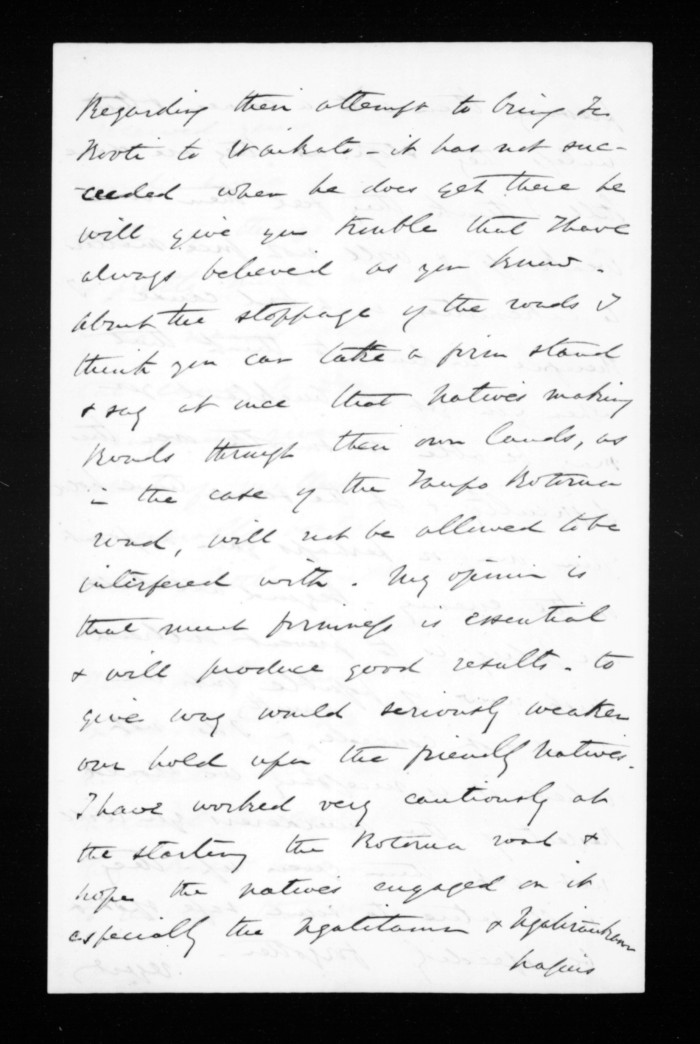 Regarding their attempt to bring Te
Kooti to Waikato - it has not suc-
-ceeded when he does get there he
will give you trouble that I have
always believed as you know.
About the stoppage of the roads I
think you can take a firm stand
& say at once that Natives making
Roads through their own lands, as
in the case of the Taupo Rotorua
road, will not be allowed to be
interfered with. My opinion is
that much firmness is essential
& will produce good results. to
give way would seriously weaken
our hold upon the friendly Natives.
I have worked very cautiously at
the starting the Rotorua road &
hope the natives engaged on it
especially the &